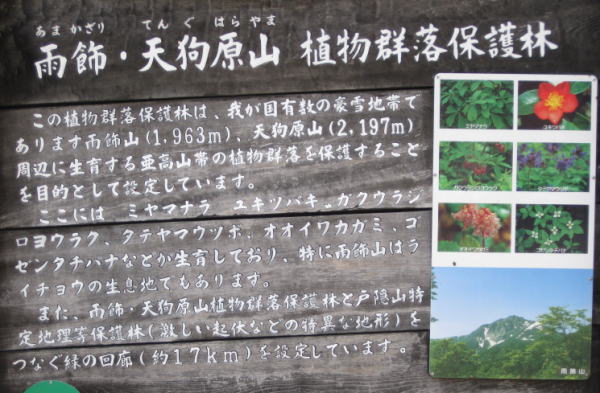 あまかざり てんぐはらやま
雨飾・天狗原山 植物群落保護林
この植物群落保護林は、我が国有数の豪雪地帯で
あります雨飾山(1,963m)、天狗原山(2,197m)
周辺に生育する亜高山帯の植物群落を保護すること
を目的として設定しています。
ここには ミヤマナラ ユキツバキ、ガクウラジ
ロヨウラク、タテヤマウツボ、オオイワカガミ、ゴ
ゼンタチバナなどが生育しており、特に雨飾山はラ
イチョウの生息地でもあります。
また、雨飾・天狗原山植物群落保護林と戸隠山特
定地理等保護林(激しい起伏などの特異な地形)を
つなぐ緑の回廊(約17km)を設定しています。
ミヤマナラ
ユキツバキ
雨飾山